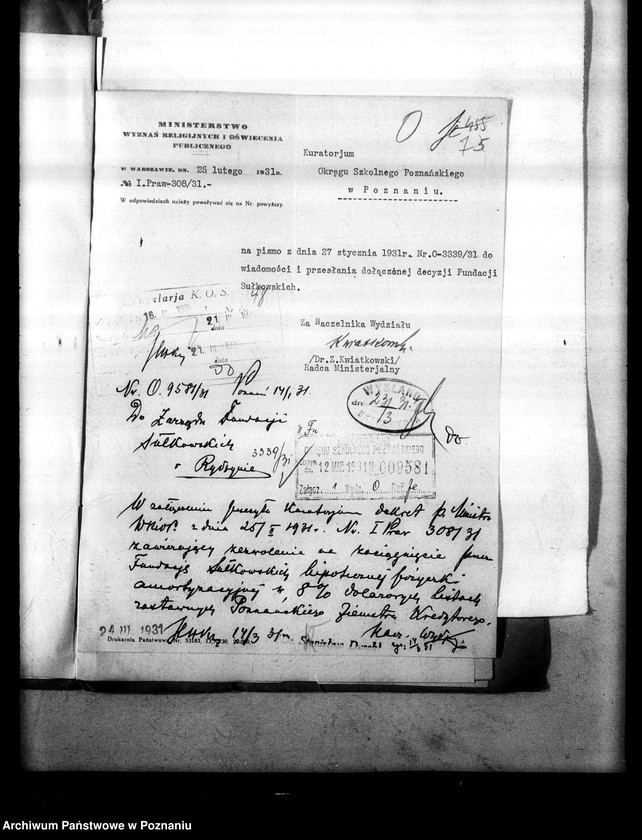 MINISTERSTWO
WYZNAŃ RELIGIJNYCH I OŚWIECENIA
PUBLICZNEGO
W WARSZAWIE, DN. 25 lutego 1931 R.
№ I.Praw-308/31.-
W odpowiedziach należy powoływać się na Nr. powyższy.
O
455
75
Kuratorjum
Okręgu Szkolnego Poznańskiego
w Poznaniu.
na pismo z dnia 27 stycznia 1931r. Nr.O-3339/31 do
wiadomości i przesłania dołączonej decyzji Fundacji
Sułkowskich.
Za Naczelnika Wydziału
/Dr.Z.Kwiatkowski/
Radca Ministerjalny
Kancelarja K. O. S.
Nr. O. 9581/31
Do Zarządu Fundacji
Sułkowskich
w Rydzynie
3339/31
WYSŁANO
dn. 23/3 31
OKRĘGU SZKOLNEGO POZNAŃSKIEGO
dn. 12 MAR 1931 009581
Załącz. 1 Wydz. O Ref.
W załączeniu przesyła Kuratorjum dekret p. Ministra
W.R.i O.P. z dnia 25/II 1931r. Nr. I Praw 308/31
zawierający zezwolenie na zaciągnięcie przez
Fundację Sułkowskich hipotecznej pożyczki
amortyzacyjnej w 8% dolarowych listach
zastawnych Poznańskiego Ziemstwa Kredytowego.
24 III 1931
14/3 31r.
Drukarnia Państwowa Nr. 53183.
Archiwum Państwowe w Poznaniu